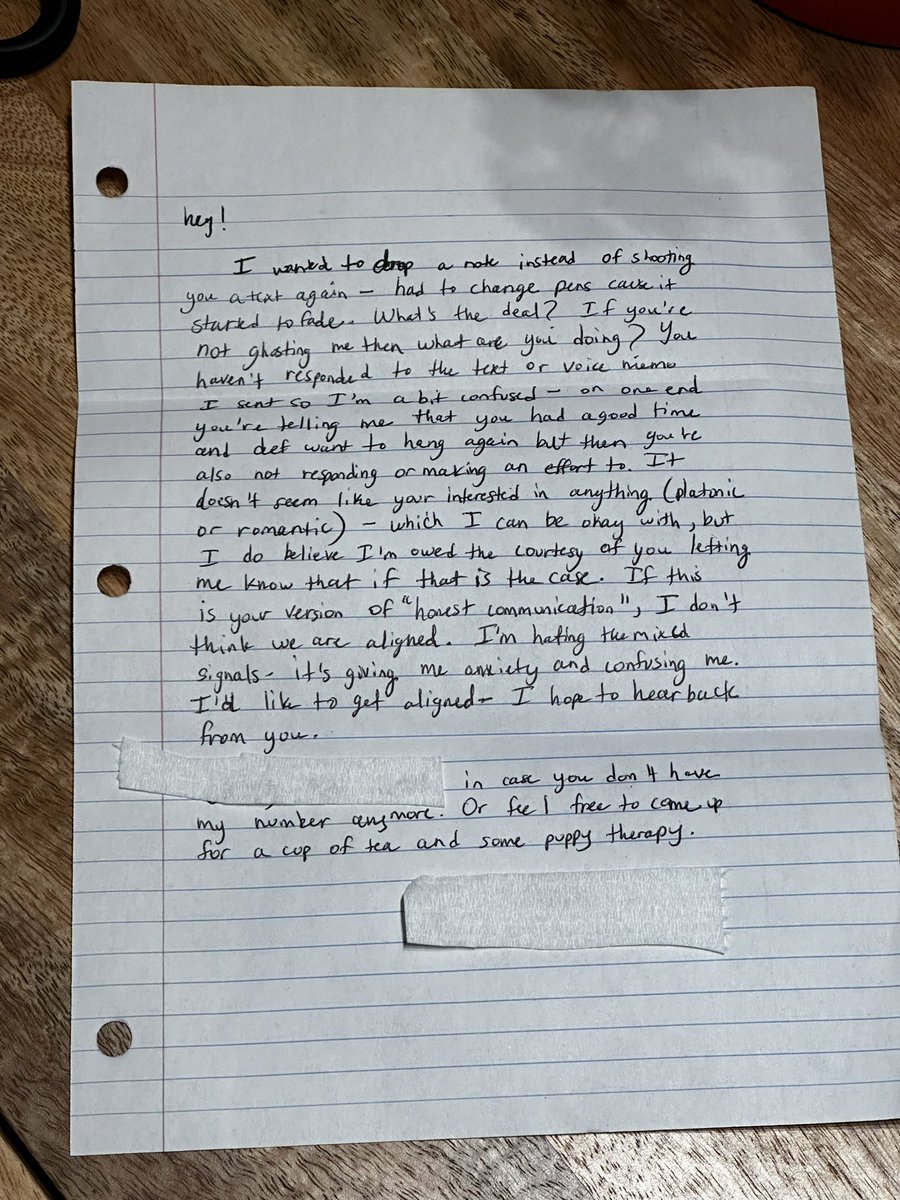 hey!
I wanted to drop a note instead of shooting
you a text again – had to change pens cause it
started to fade. What's the deal? If you're
not ghosting me then what are you doing? You
haven't responded to the text or voice memo
I sent so I'm a bit confused – on one end
you're telling me that you had a good time
and def want to hang again but then you're
also not responding or making an effort to. It
doesn't seem like your interested in anything (platonic
or romantic) – which I can be okay with, but
I do believe I'm owed the courtesy of you letting
me know that if that is the case. If this
is your version of "honest communication", I don't
think we are aligned. I'm hating the mixed
signals – it's giving me anxiety and confusing me.
I'd like to get aligned – I hope to hear back
from you.
in case you don't have
my number anymore. Or feel free to come up
for a cup of tea and some puppy therapy.